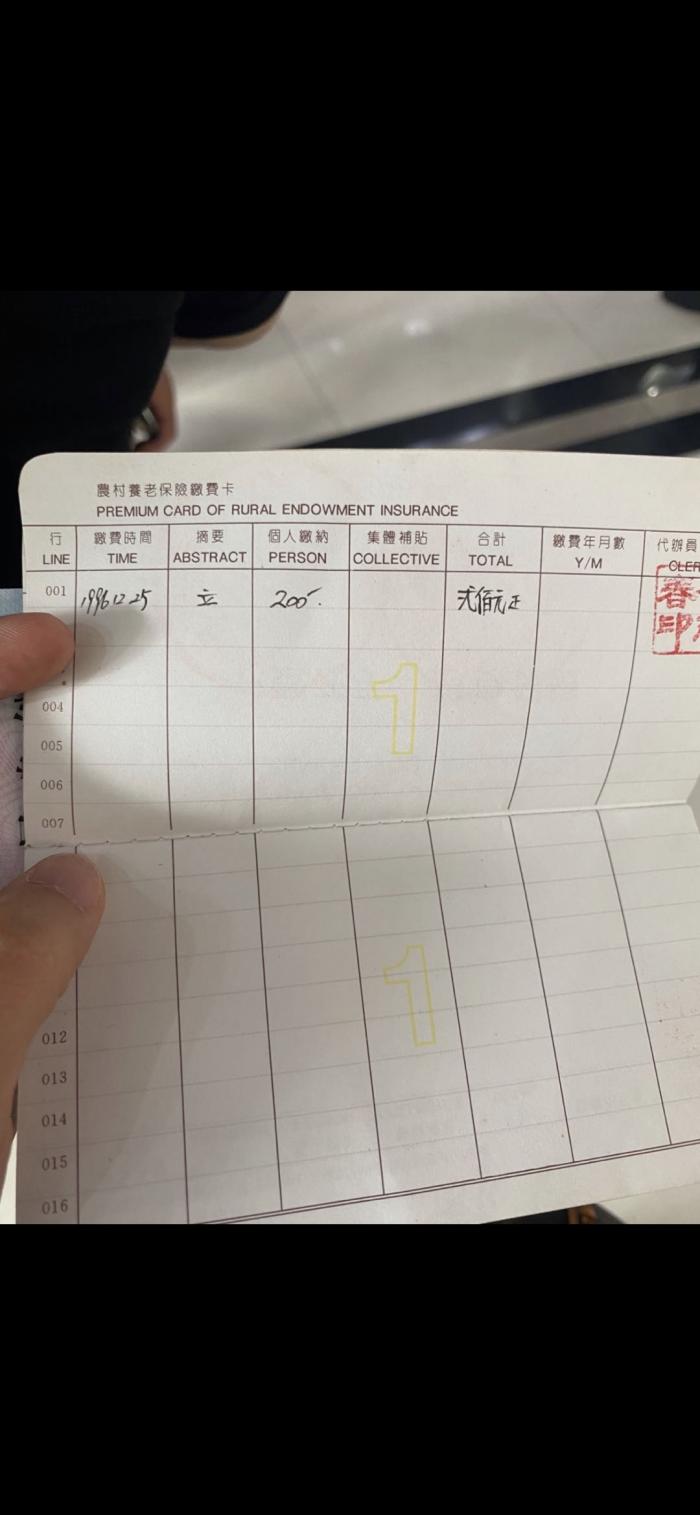 農村養老保險繳費卡
PREMIUM CARD OF RURAL ENDOWMENT INSURANCE
行 繳費時間 摘要 個人繳納 集體補貼 合計 繳費年月數 代辦員
LINE TIME ABSTRACT PERSON COLLECTIVE TOTAL Y/M CLER
001 1996.12.25 立 200 弍佰元正 春印
004
005
006
007
1
012
013
014
015
016
1